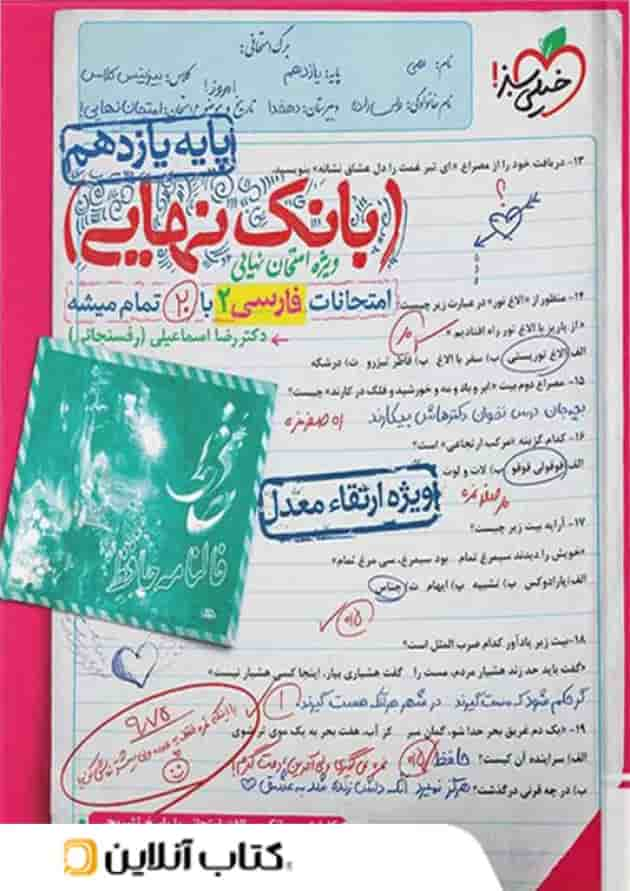 برگ امتحانی:
خیلی سبز!
نام:
پایه: یازدهم
کلاس: بیزینس کلاس
نام خانوادگی:
دبیرستان: دهخدا
امروز!
پایه یازدهم
۱۳- دریافت خود را از مصراع «ای تیر غمت را دل عشاق نشانه» بنویسید.
؟
(بانک نهایی)
ویژه امتحان نهایی
امتحانات فارسی ۲ با ۲۰ تمام میشه
دکتر رضا اسماعیلی (رفسنجانی)
۱۴- منظور از «الاغ تور» در عبارت زیر چیست؟
«از پاریز با الاغ تور راه افتادیم.»
الف) الاغ توریستی ب) سفر با الاغ پ) قاطر تیزرو ت) درشکه
۱۵- مصراع دوم بیت «ابر و باد و مه و خورشید و فلک در کارند» چیست؟
بچه‌جان درس نخوان دکترهاش بیکارند
۱۶- کدام گزینه «مرکب ارتجاعی» است؟
الف) قوقولی قوقو ب) لات و لوت
ویژه ارتقاء معدل
فالنامه حافظ
۱۷- آرایه بیت زیر چیست؟
«خویش را دیدند سیمرغ تمام بود سیمرغ، سی مرغ تمام»
الف) پارادوکس ب) تشبیه پ) ایهام ت) جناس
۱۸- بیت زیر یادآور کدام ضرب المثل است؟
«گفت باید حد زند هشیار مردم، مست را گفت هشیاری بیار، اینجا کسی هشیار نیست»
گر حکم شود که مست گیرند در شهر هر آنکه هست گیرند
۱۹- «یک دم غریق بحر خدا شو، گمان مبر کز آب، هفت بحر به یک موی تر شوی
الف) سراینده آن کیست؟ حافظ
ب) در چه قرنی درگذشت؟ هرگز نمیرد آنکه دلش زنده شد به عشق
۹/۷۵
کتاب آنلاین